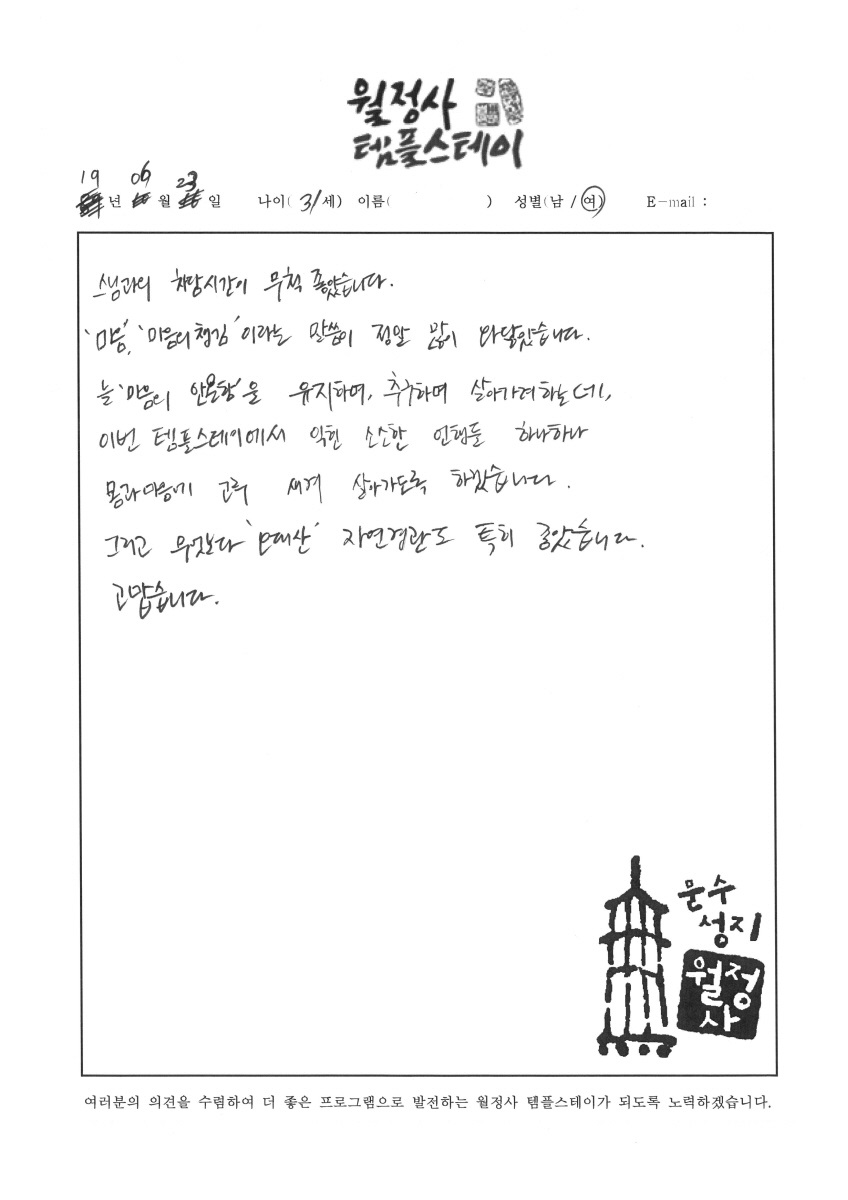 월정사
템플스테이
19 06 23
년 월 일 나이( 31 세) 이름( ) 성별(남 / 여) E-mail :
스님과의 차담시간이 무척 좋았습니다.
'마음', '마음의 챙김' 이라는 말씀이 정말 많이 와닿았습니다.
늘 '마음의 안온함'을 유지하며, 추구하며 살아가려하는데,
이번 템플스테이에서 익힌 소소한 언행들 하나하나
몸과 마음에 고루 새겨 살아가도록 하겠습니다.
그리고 무엇보다 '오대산' 자연경관도 특히 좋았습니다.
고맙습니다.
문수
성지
월정
사
여러분의 의견을 수렴하여 더 좋은 프로그램으로 발전하는 월정사 템플스테이가 되도록 노력하겠습니다.